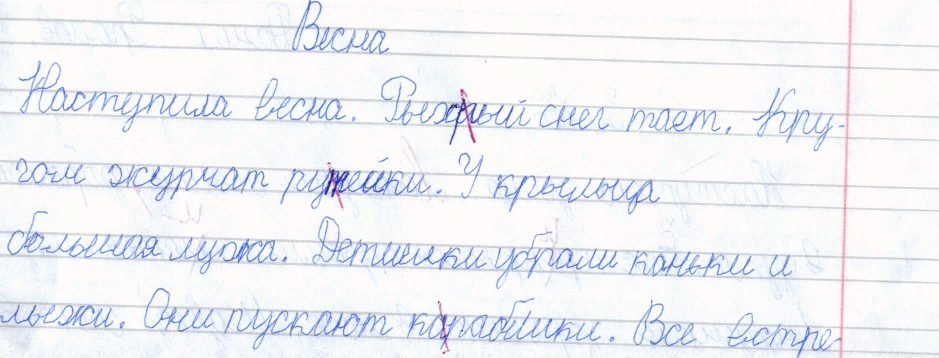 Весна
Наступила весна. Рыхлый снег тает. Кру-
гом журчат ручейки. У крыльца
большая лужа. Детишки убрали коньки и
лыжи. Они пускают караблики. Все встре-